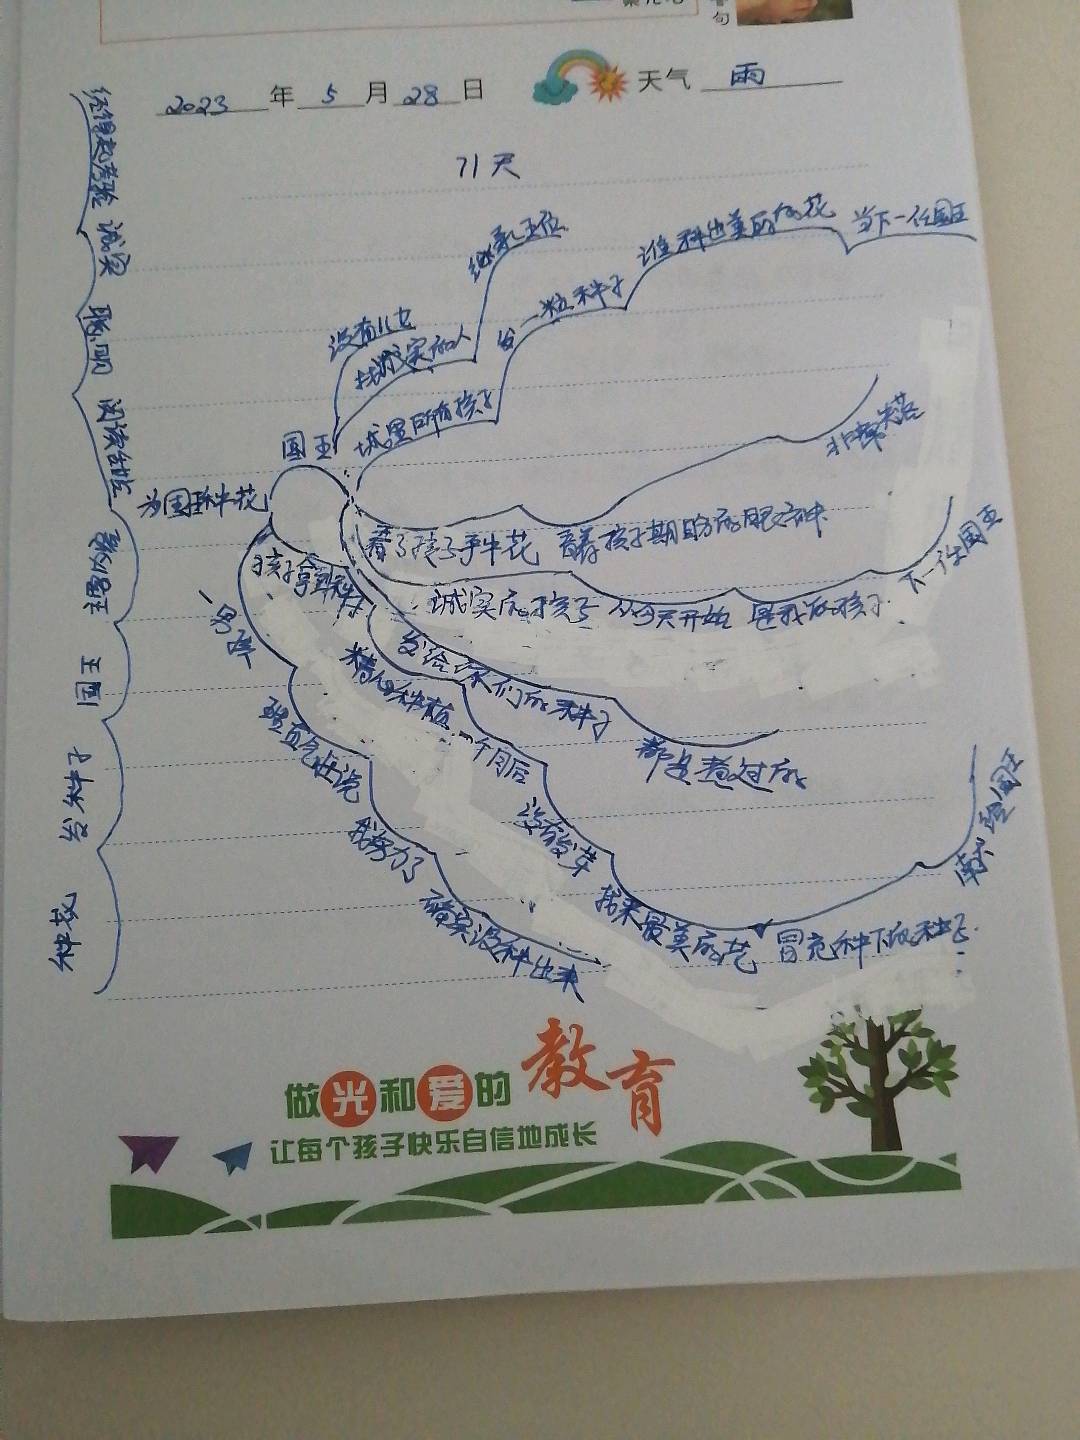 2023年5月28日 天气 雨
71天
经得起考验 诚实 聪明 阅读
国王 发种子 种花
为国王种花
国王
没有儿女
找诚实的人
继承王位
城里所有孩子
发一粒种子
谁种出美丽的花
当下一任国王
看了孩子手牛花 看着孩子期盼的眼神
非常失落
诚实的孩子 从今天开始 是我的孩子
下一任国王
发给你们的种子
都是煮过的
孩子拿到种子
精心种植
一个月后
没有发芽
拿来最美的花
冒充种下的种子
国王
一男孩
理直气壮说
我努力了
确实没种出来
做光和爱的教育
让每个孩子快乐自信地成长